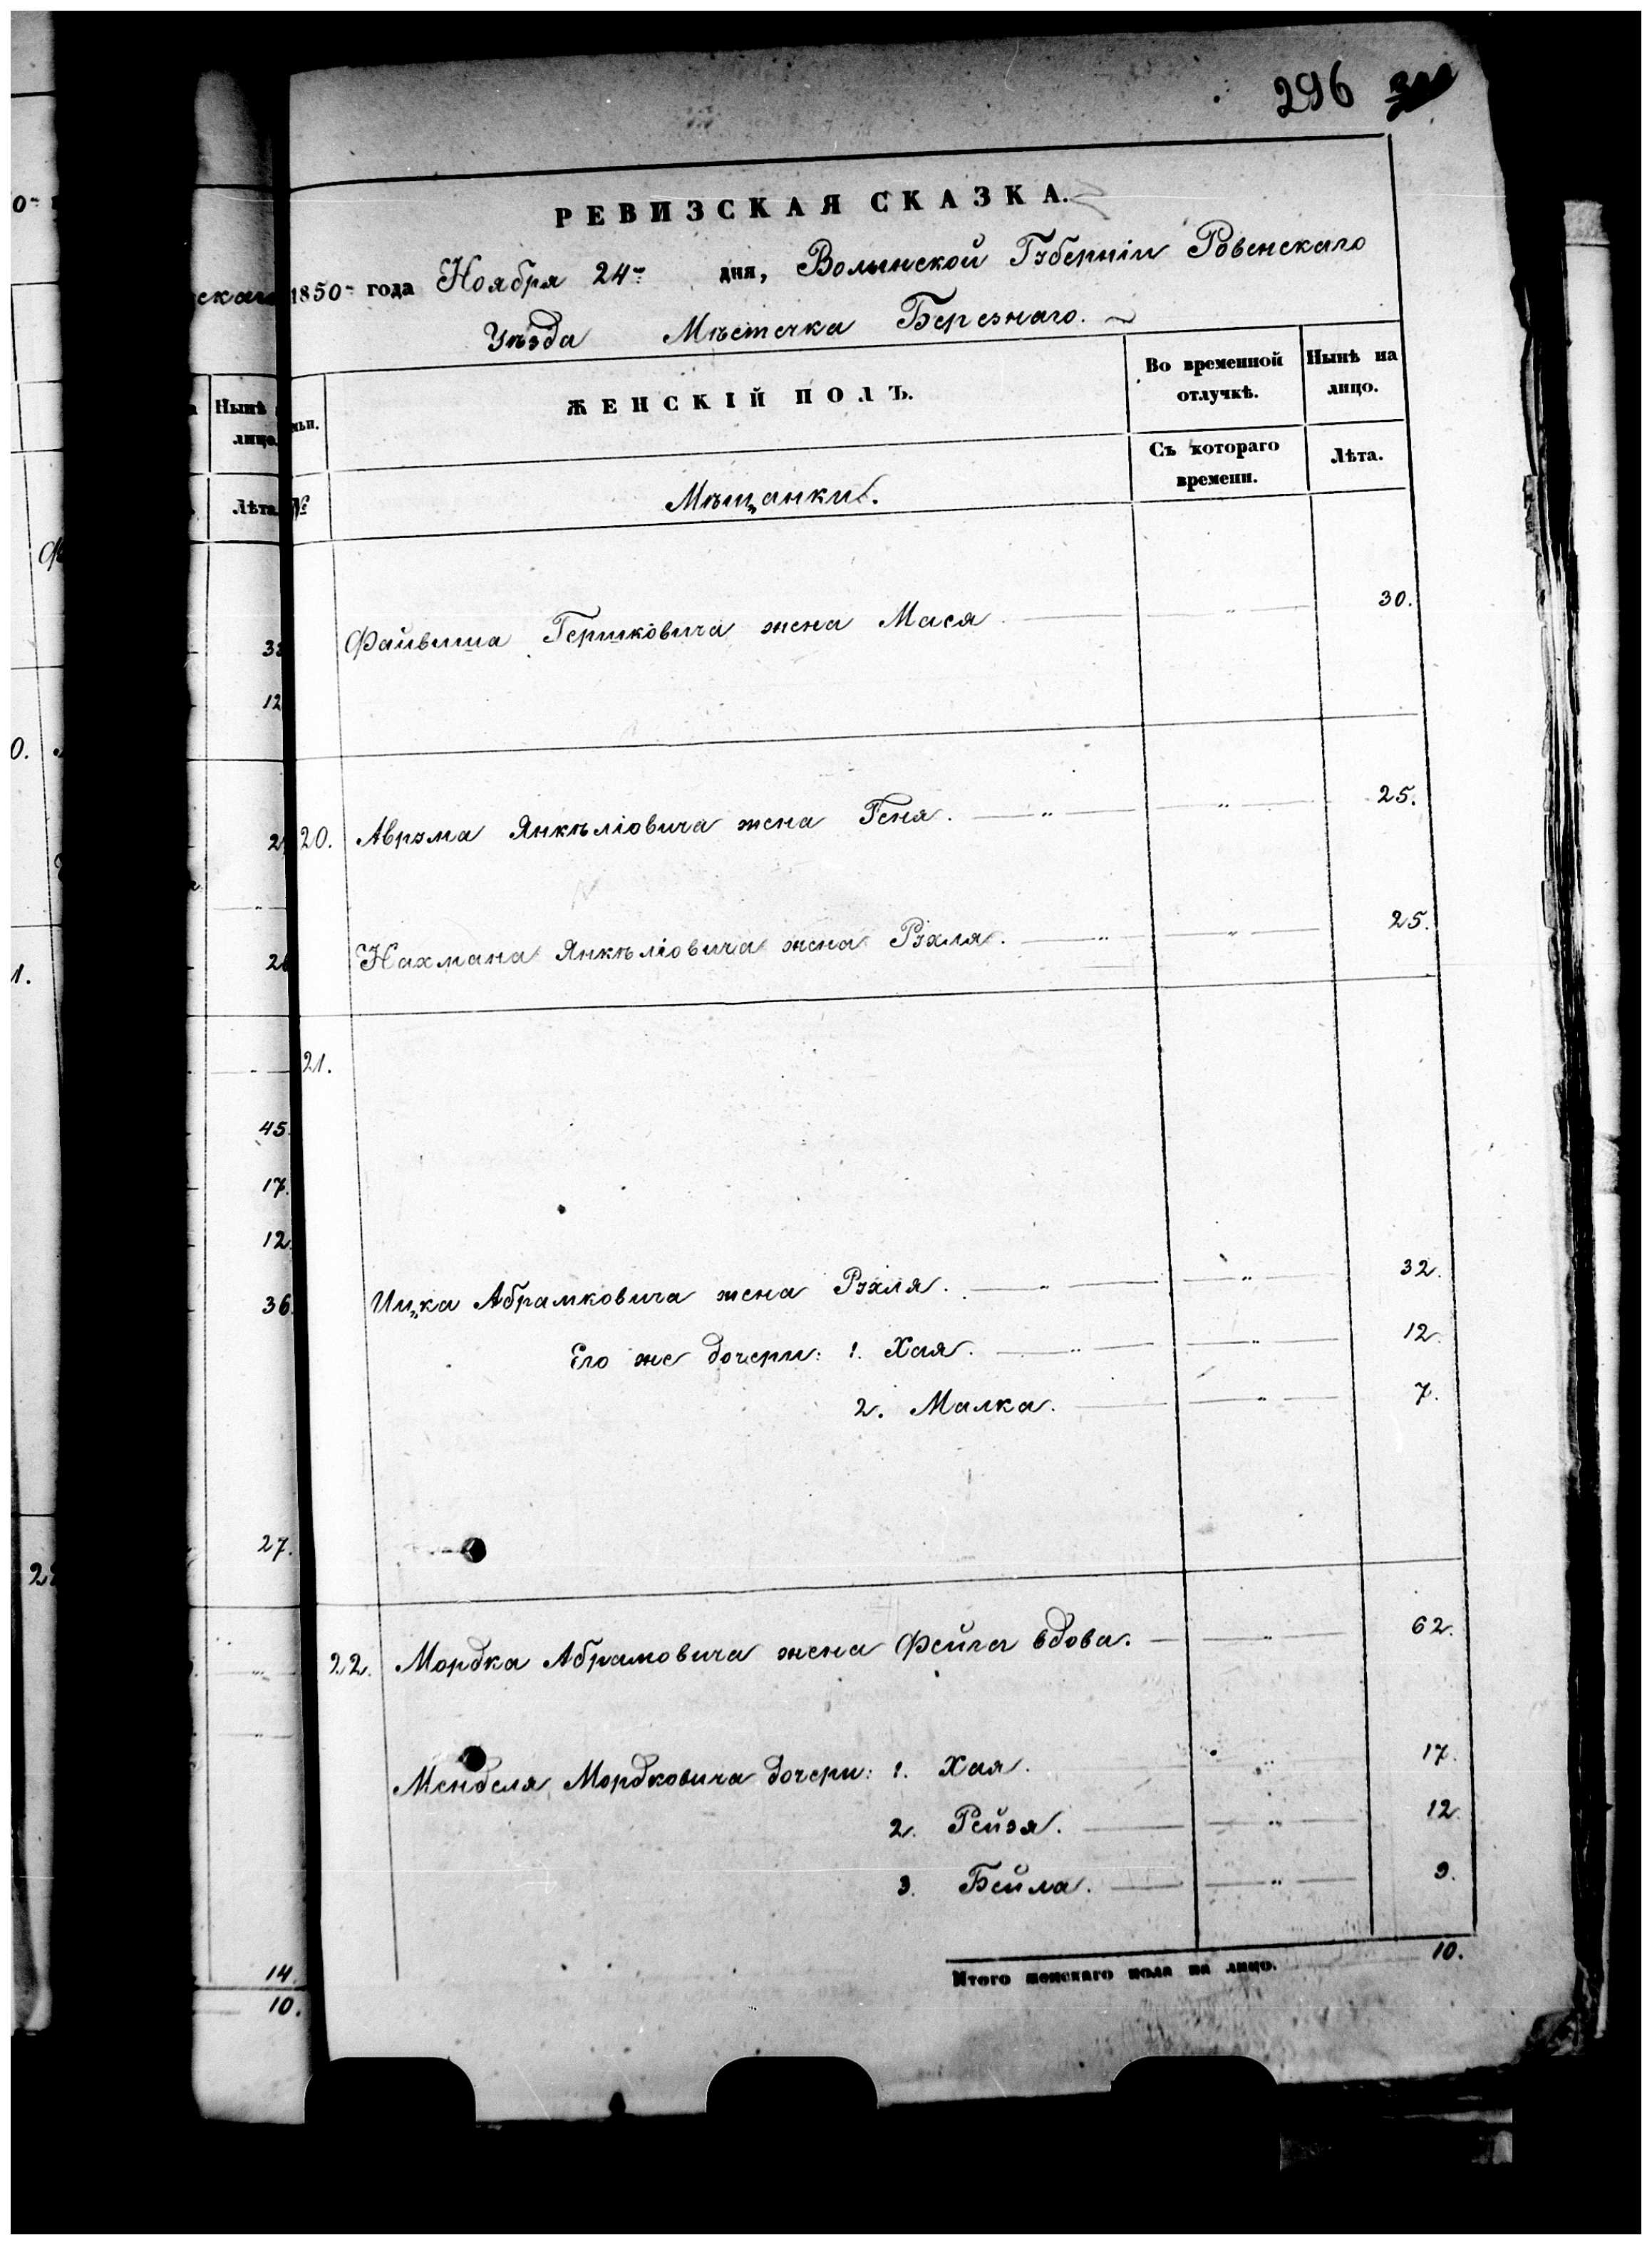 296
РЕВИЗСКАЯ СКАЗКА.
1850 года Ноября 24 дня, Волынской Губерніи Ровенскаго
Уѣзда Мѣстечка Березнаго.
ЖЕНСКІЙ ПОЛЪ.
Во временной отлучкѣ.
Нынѣ на лицо.
№
Мѣщанки.
Съ котораго времени.
Лѣта.
Файвиша Гершковича жена Мася 30.
20. Аврума Янкѣліовича жена Геня. 25.
Нахмана Янкѣліовича жена Рухля. 25.
21.
Ицка Абрамковича жена Рухля. 32.
Его же дочери: 1. Хая. 12.
2. Малка. 7.
22. Мордка Абрамовича жена Фейга вдова. 62.
Менделя Мордковича дочери: 1. Хая. 17.
2. Рейзя. 12.
3. Бейла. 9.
Итого женскаго пола на лицо. 10.
скаго
Нынѣ
лицо.
Лѣта.
12
45.
17.
12.
36.
27.
14.
10.